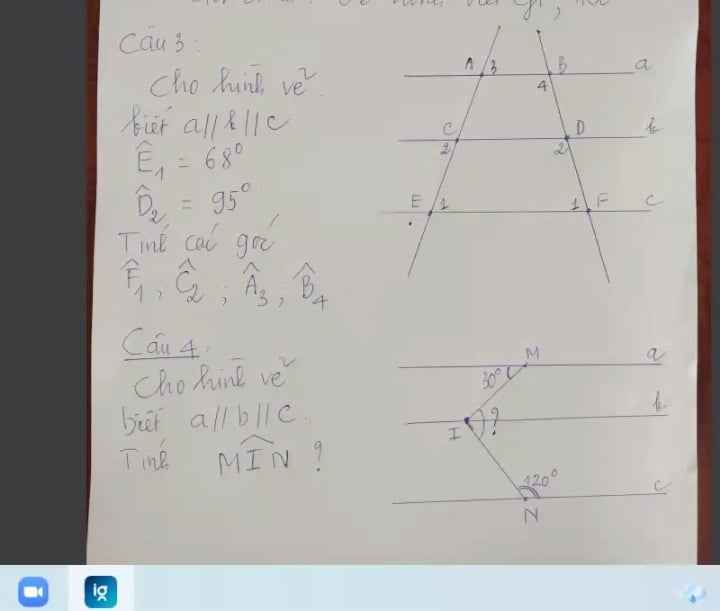 Câu 3:
Cho hình vẽ.
biết a // b // c
Ê₁ = 68°
D̂₂ = 95°
Tính các góc
F̂₁, Ĉ₂; Â₃, B̂₄
A 3 B a
4
C D b
2 2
E 1 1 F c
Câu 4.
Cho hình vẽ
biết a // b // c.
Tính MÎN ?
M a
30°
b
I ?
120° c
N
ig